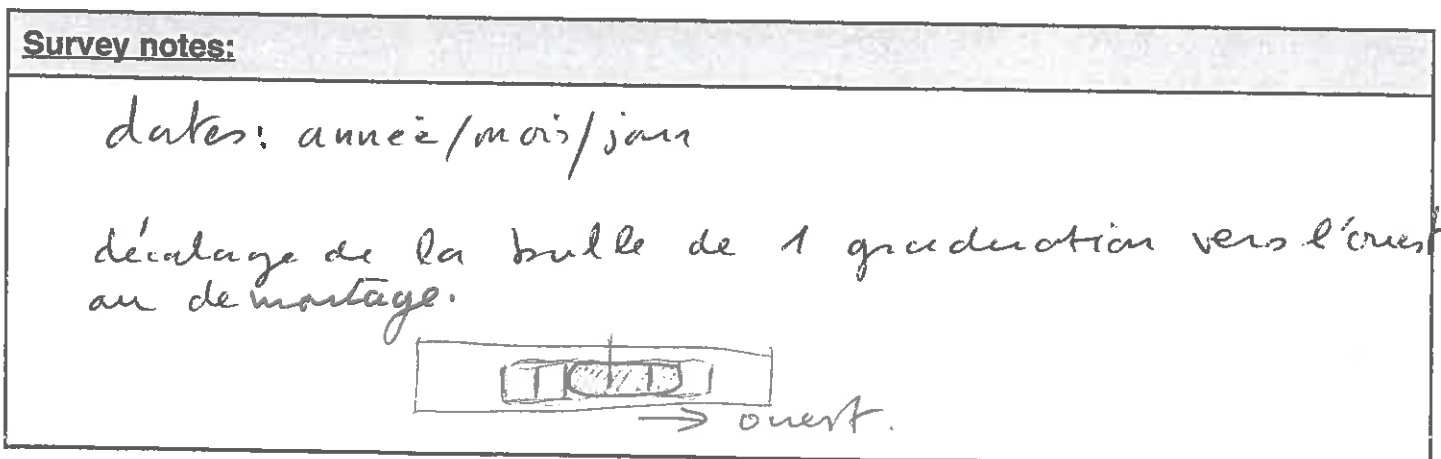 Survey notes:
dates: année/mois/jour
décalage de la bulle de 1 graduation vers l'ouest
au démontage.
→ ouest.